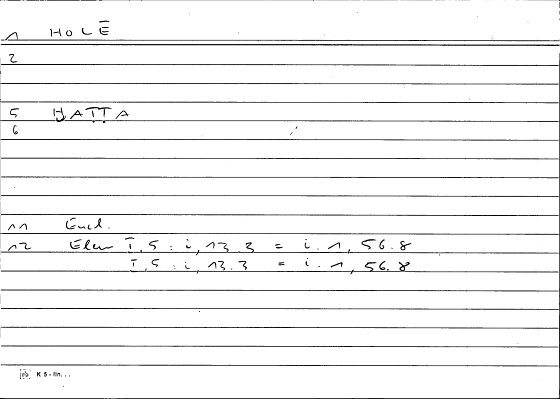 1 HOLĒ
2
5 ḤAṬṬA
6
11 Eucl.
12 Elem I,5 : i, 13.3 = i. 1, 56.8
I,5 : i, 13.3 = i. 1, 56.8
K 5 - lin...